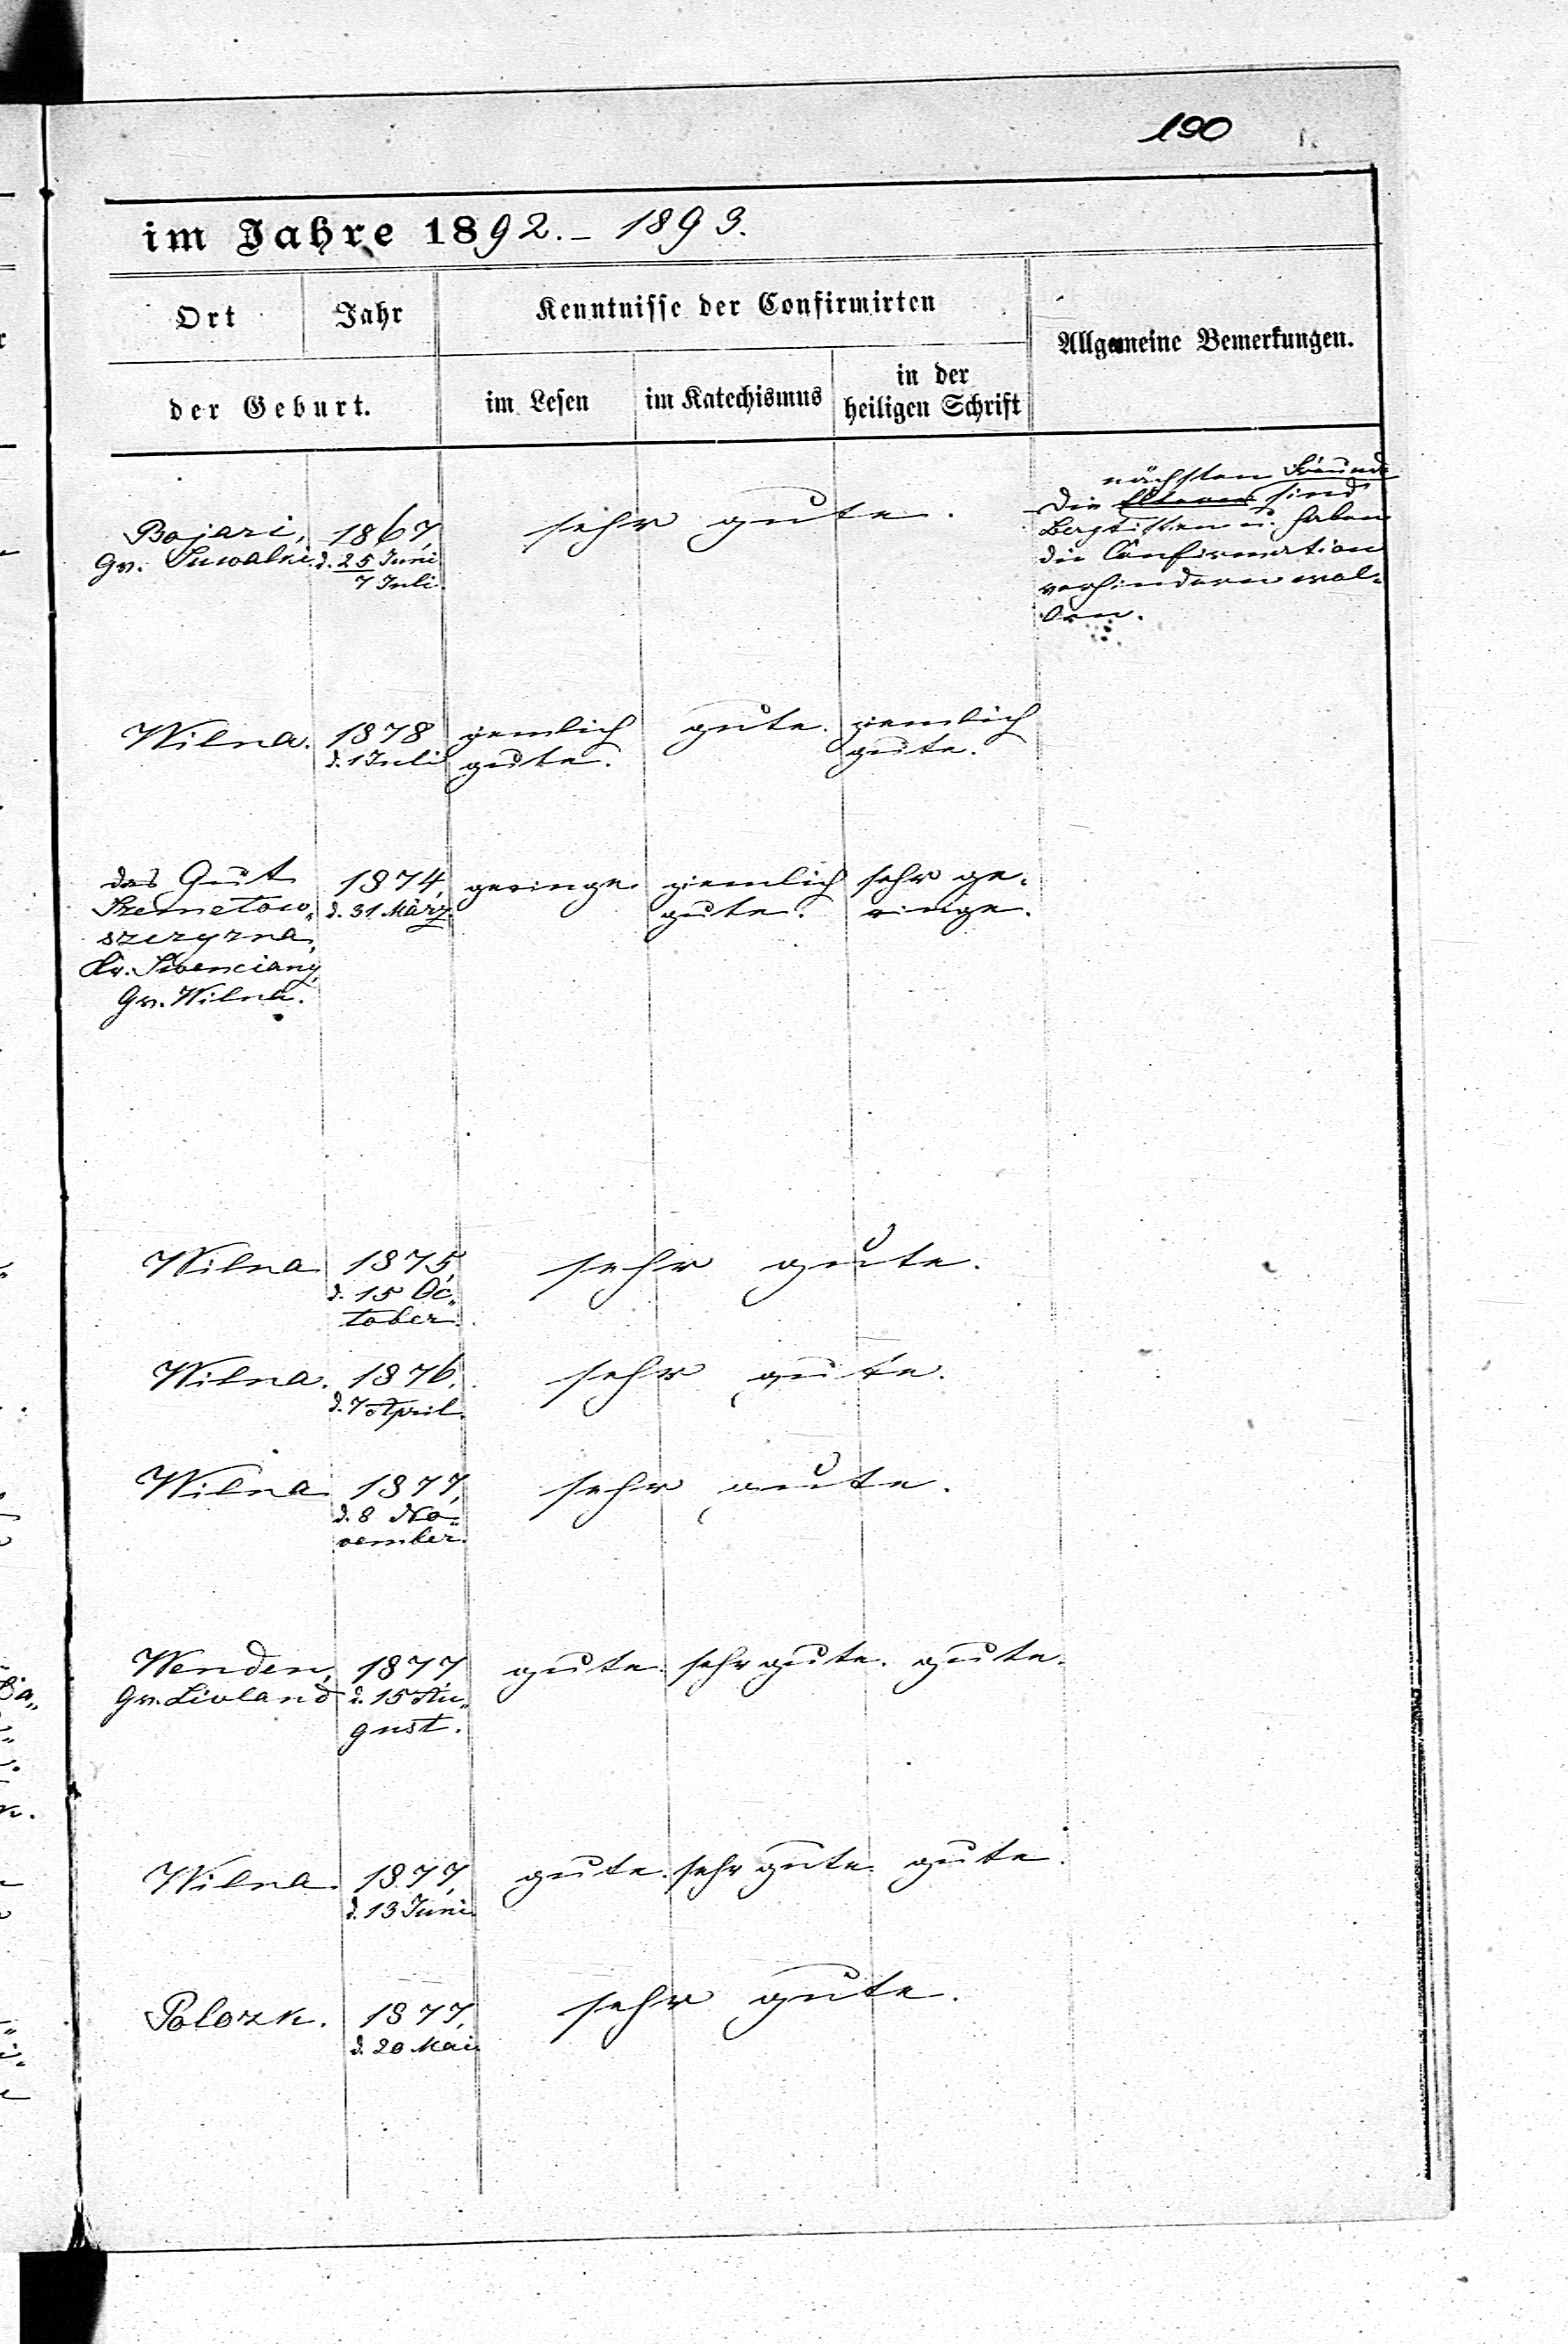 190
im Jahre 1892. - 1893.
Ort
Jahr
Kenntnisse der Confirmirten
Allgemeine Bemerkungen.
der Geburt.
im Lesen
im Katechismus
in der
heiligen Schrift
Bojari,
Gv. Suwalki.
1867,
d. 25 Juni
7 Juli.
sehr gute.
nächsten Freunde
Die Eltern sind
Baptisten u. haben
die Confirmation
verhindern wol-
len.
Wilna.
1878
d. 1 Juli
ziemlich
gute.
gute.
ziemlich
gute.
das Gut
Szemetow-
szczyzna,
Kr. Swenciany,
Gv. Wilna.
1874,
d. 31 März
geringe
ziemlich
gute.
sehr ge-
ringe.
Wilna
1875,
d. 15 Oc-
tober.
sehr gute.
Wilna.
1876.
d. 7 April.
sehr gute.
Wilna
1877,
d. 8 No-
vember.
sehr gute.
Wenden,
Gv. Livland
1877
d. 15 Au-
gust.
gute.
sehr gute.
gute.
Wilna.
1877,
d. 13 Juni
gute.
sehr gute.
gute.
Polozk.
1877,
d. 20 Mai
sehr gute.